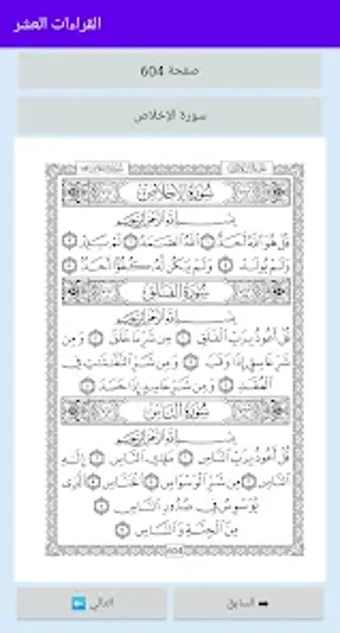 القراءات العشر
صفحة 604
سورة الإخلاص
سُورَةُ الإِخْلَاصِ
بِسْمِ اللَّهِ الرَّحْمَٰنِ الرَّحِيمِ
قُلْ هُوَ اللَّهُ أَحَدٌ اللَّهُ الصَّمَدُ لَمْ يَلِدْ
وَلَمْ يُولَدْ وَلَمْ يَكُن لَّهُ كُفُؤًا أَحَدٌ
سُورَةُ الْفَلَقِ
بِسْمِ اللَّهِ الرَّحْمَٰنِ الرَّحِيمِ
قُلْ أَعُوذُ بِرَبِّ الْفَلَقِ مِن شَرِّ مَا خَلَقَ وَمِن
شَرِّ غَاسِقٍ إِذَا وَقَبَ وَمِن شَرِّ النَّفَّٰثَٰتِ فِي
الْعُقَدِ وَمِن شَرِّ حَاسِدٍ إِذَا حَسَدَ
سُورَةُ النَّاسِ
بِسْمِ اللَّهِ الرَّحْمَٰنِ الرَّحِيمِ
قُلْ أَعُوذُ بِرَبِّ النَّاسِ مَلِكِ النَّاسِ إِلَٰهِ
النَّاسِ مِن شَرِّ الْوَسْوَاسِ الْخَنَّاسِ الَّذِي
يُوَسْوِسُ فِي صُدُورِ النَّاسِ
مِنَ الْجِنَّةِ وَالنَّاسِ
604
➡ السابق
التالي ⬅